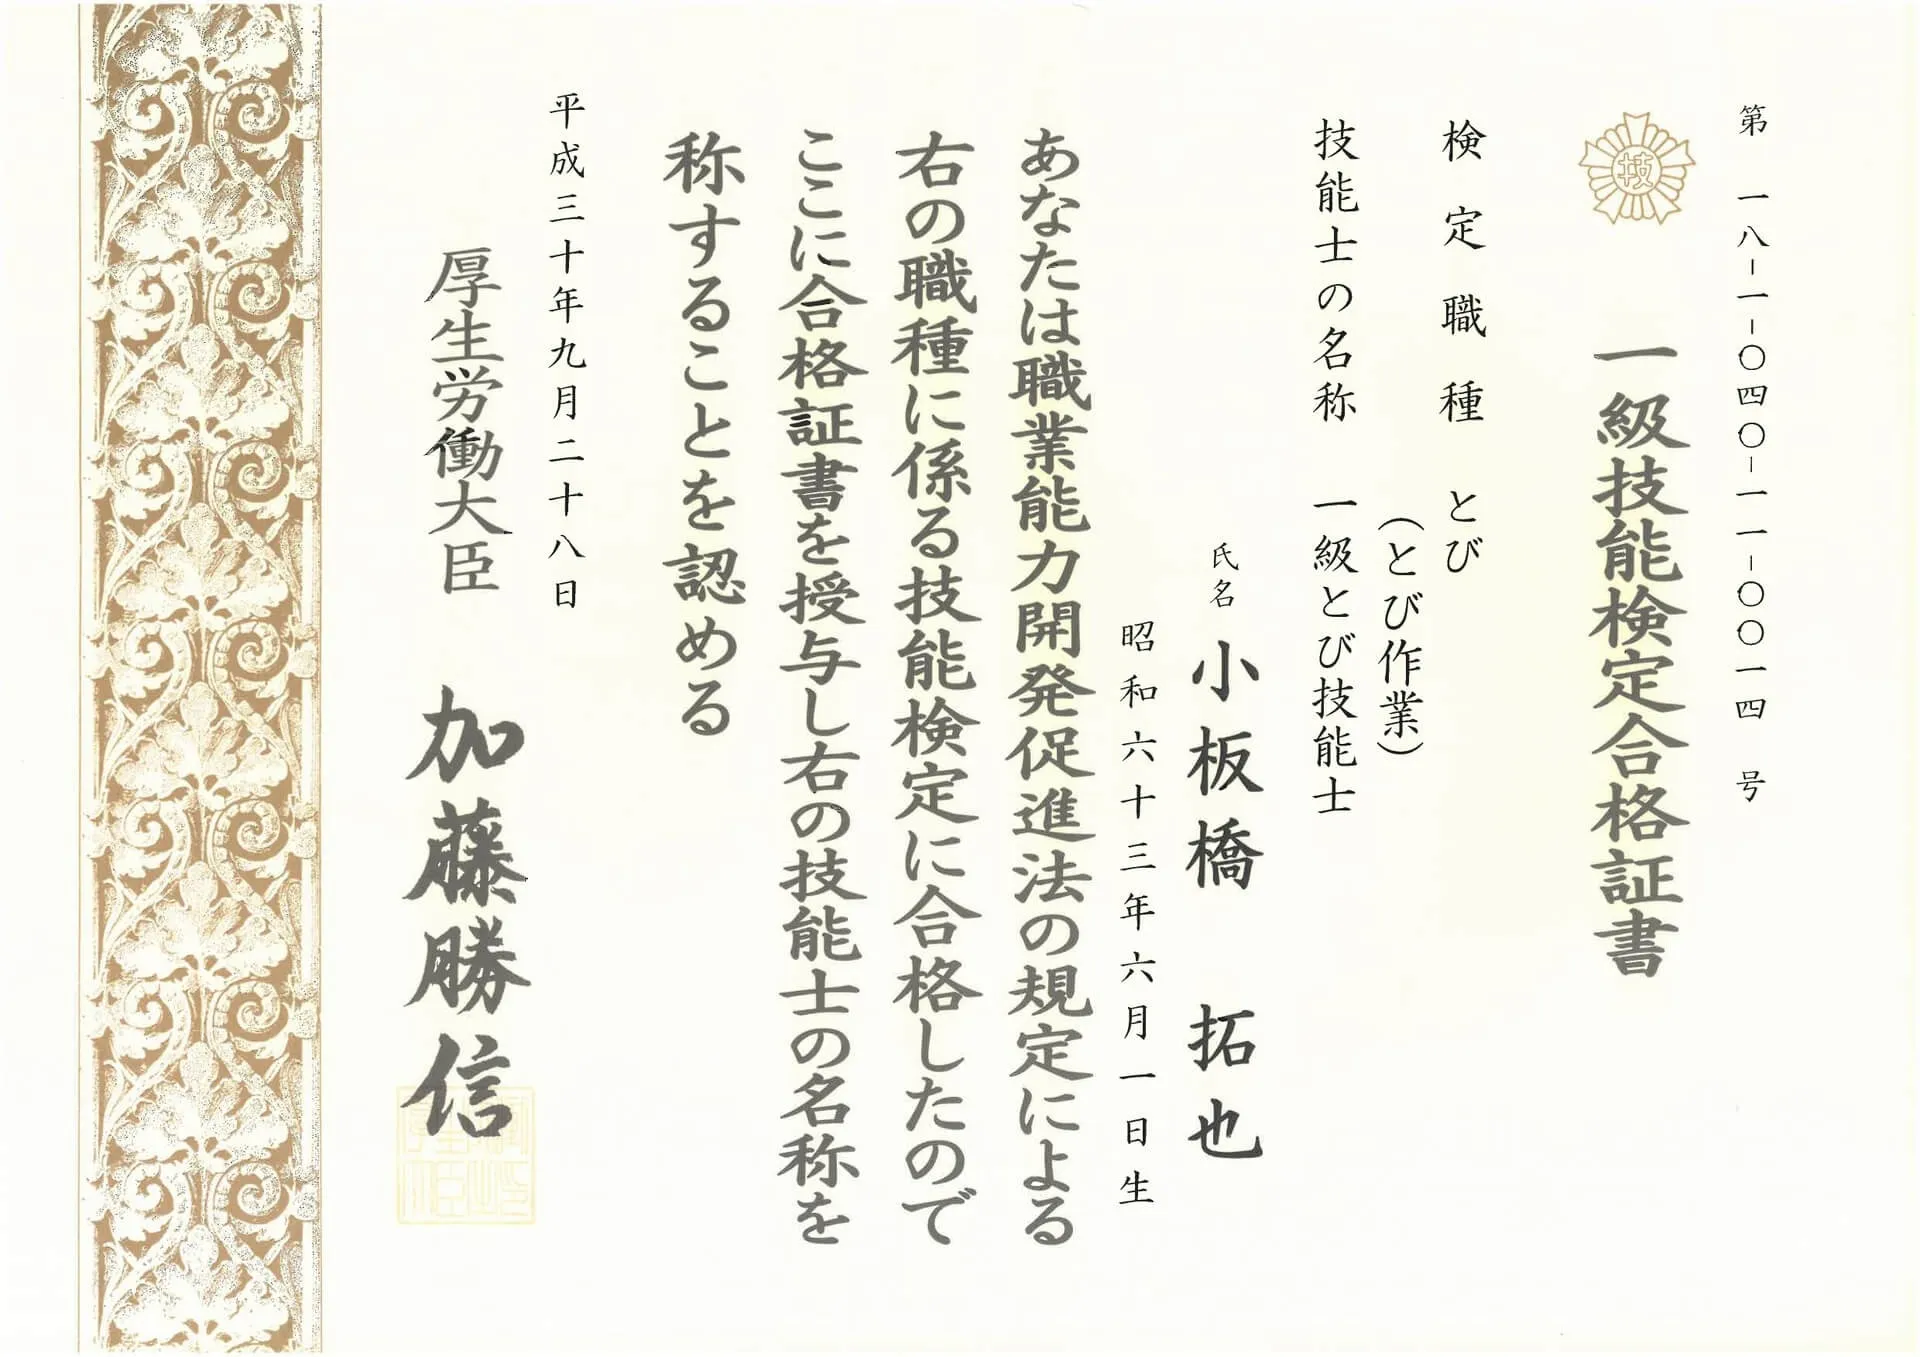 第 一八-一-〇四〇-一一-〇〇一四 号
技
一級技能検定合格証書
検定職種 とび
(とび作業)
技能士の名称 一級とび技能士
氏名 小板橋 拓也
昭和六十三年六月一日生
あなたは職業能力開発促進法の規定による
右の職種に係る技能検定に合格したので
ここに合格証書を授与し右の技能士の名称を
称することを認める
平成三十年九月二十八日
厚生労働大臣 加藤勝信